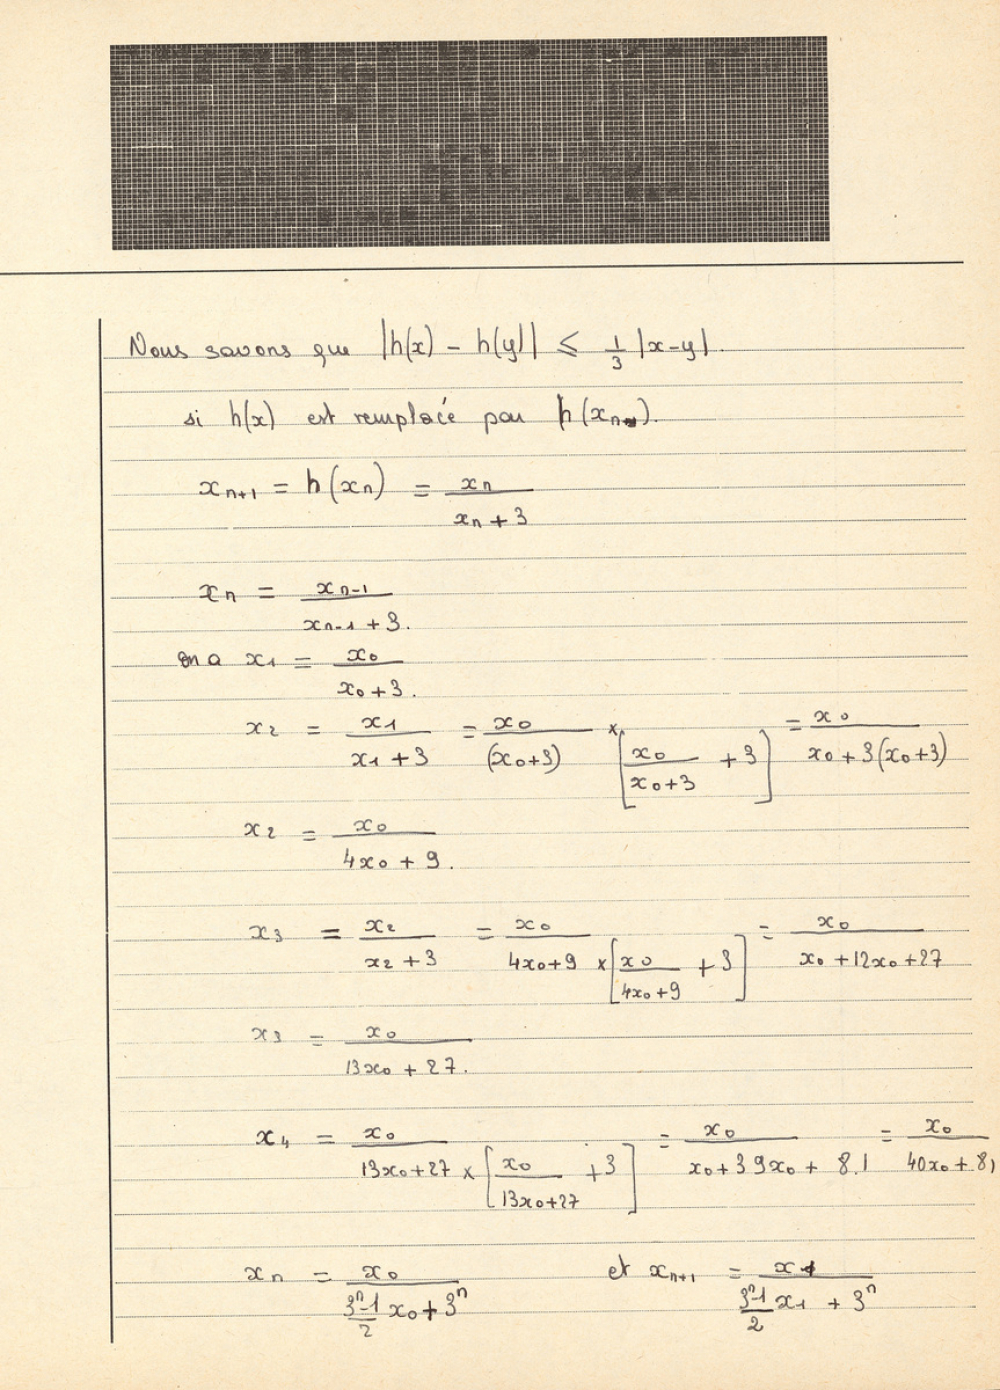 Nous savons que |h(x) - h(y)| ≤ 1/3 |x-y|.
si h(x) est remplacé par h(xn).
xn+1 = h(xn) = xn / (xn + 3)
xn = xn-1 / (xn-1 + 3).
on a x1 = x0 / (x0 + 3).
x2 = x1 / (x1 + 3) = x0 / (x0+3) × [x0 / (x0+3) + 3] = x0 / (x0 + 3(x0+3))
x2 = x0 / (4x0 + 9).
x3 = x2 / (x2 + 3) = x0 / (4x0+9 × [x0 / (4x0+9) + 3]) = x0 / (x0 + 12x0 + 27)
x3 = x0 / (13x0 + 27).
x4 = x0 / (13x0+27 × [x0 / (13x0+27) + 3]) = x0 / (x0 + 39x0 + 81) = x0 / (40x0 + 81)
xn = x0 / ((3^n-1)/2 x0 + 3^n) et xn+1 = x1 / ((3^n-1)/2 x1 + 3^n)